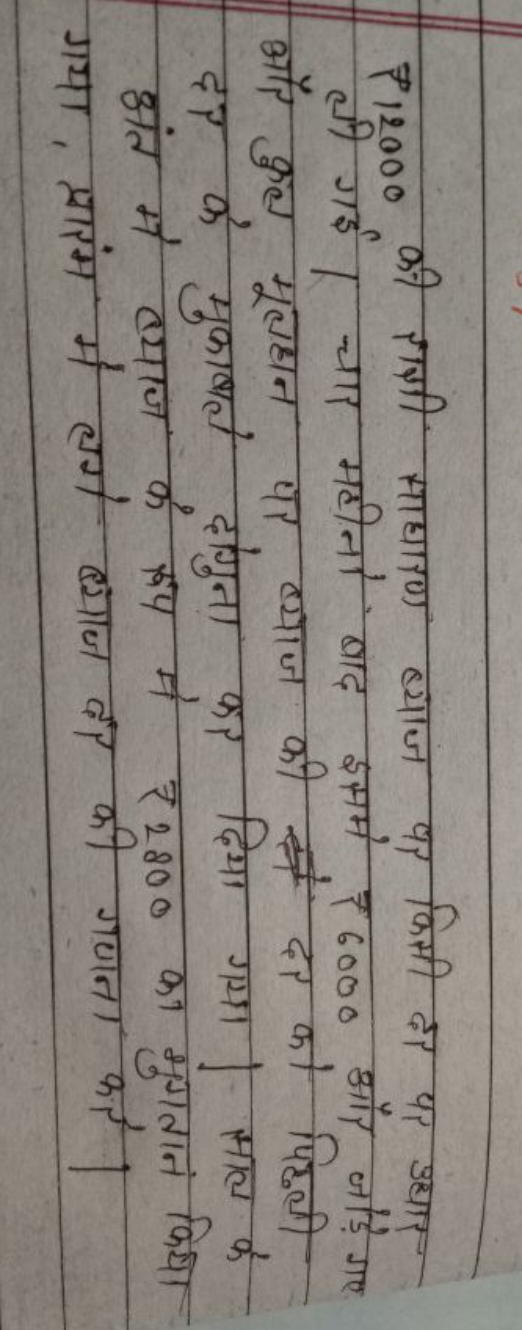 ₹12000 की राशी साधारण ब्याज पर किसी दर पर उधार
ली गई। चार महीनों बाद इसमें ₹6000 और जोड़े गए
और कुल मूलधन पर ब्याज की दर को पिछली
दर के मुकाबले दोगुना कर दिया गया। साल के
अंत में ब्याज के रूप में ₹2800 का भुगतान किया
गया, प्रारंभ में लगे ब्याज दर की गणना करें।